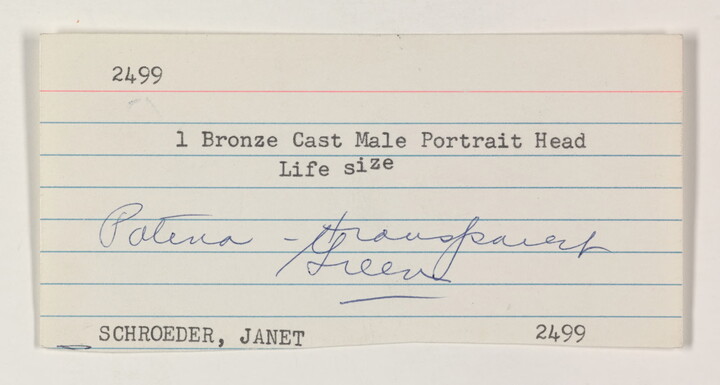 2499
1 Bronze Cast Male Portrait Head
Life size
Patena - transparent
Green
SCHROEDER, JANET 2499